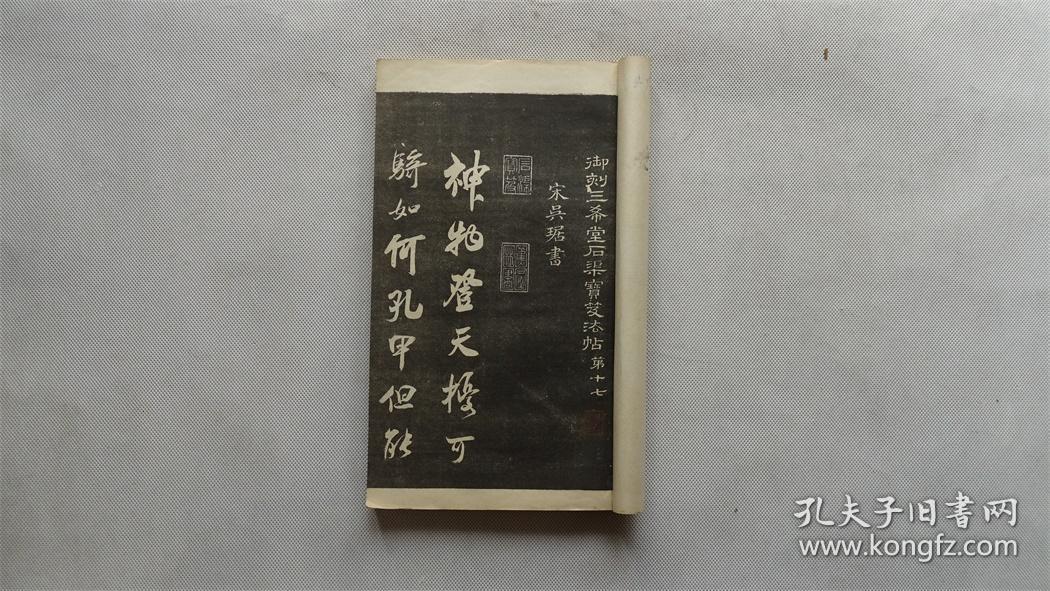 御刻三希堂石渠寶笈法帖 第十七
宋吳琚書
石渠寶笈
神物登天擾可
騎如何孔甲但能
孔夫子旧书网
www.kongfz.com